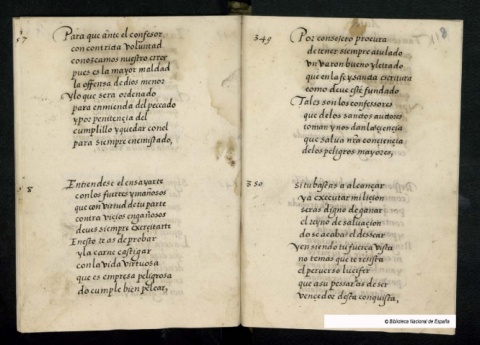 57
Para que ante el confesor
con contrida voluntad
conozcamos nuestro error
pues es la mayor maldad
la offensa de dios menor
Y lo que sera ordenado
para enmienda del peccado
y por penitençia del
cumplillo y quedar con el
para siempre enemistado,
58
Entiendese el ensayarte
con los fuertes y mañosos
que con virtud de tu parte
contra vicios engañosos
deues siempre exerçitarte
En esto te as de probar
y la carne castigar
con la vida virtuosa
que es empresa peligrosa
do cumple bien pelear,
349
Por consejero procura
de tener siempre a tu lado
vn varon bueno y letrado
que en la fe y sancta escritura
como deue esté fundado
Tales son los confessores
que de los sanctos auctores
toman y nos dan la sçiençia
que salua nra conçiençia
de los peligros mayores,
350
si tu bastas a alcançar
ya exerçitar mi liçion
seras digno de ganar
el reyno de saluaçion
do se acaba el dessear
Y en siendo tu fuerça vista
no temas que te resista
el peruerso luçifer
que a su pesar as de ser
vencedor desta conquista,
© Biblioteca Nacional de España